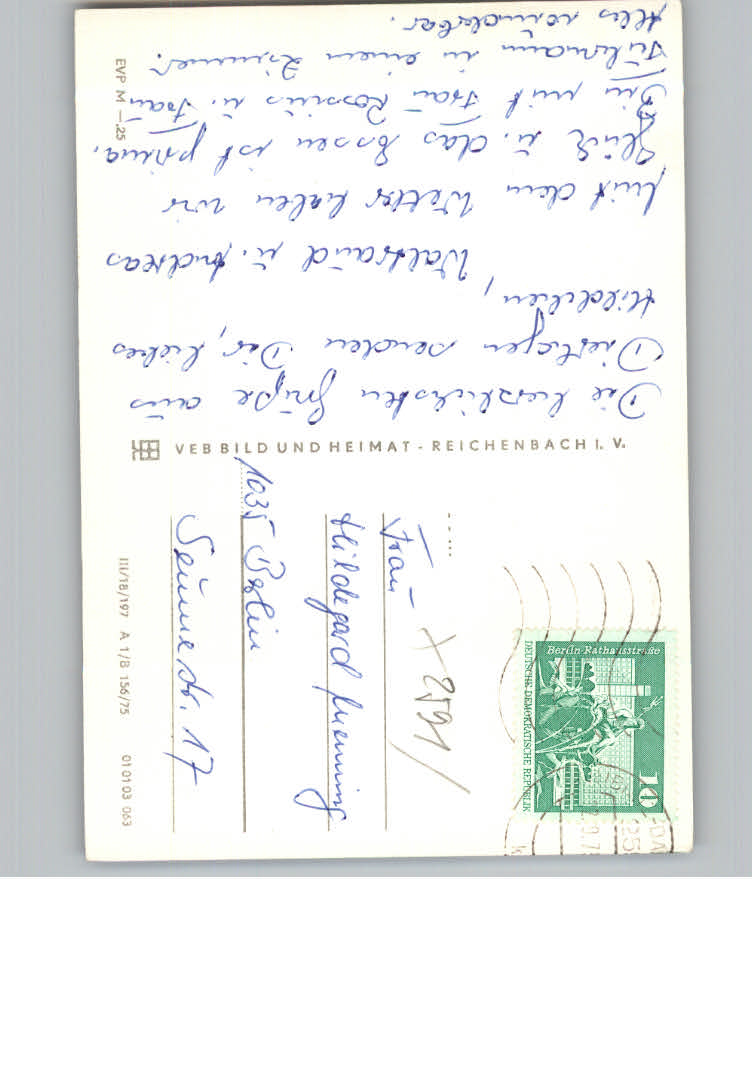 Die herzlichsten Grüße aus
Dierhagen senden Dir, liebes
Hildchen,
Waltraud u. Andreas
Mit dem Wetter haben wir
Glück u. das Essen ist prima.
Bin mit Frau Rossius u. Frau
in einem Zimmer.
Alles wunderbar.
EVP M —,25
VEB BILD UND HEIMAT - REICHENBACH I. V.
Frau
Hildegard
1035 Berlin
Seumestr. 17
X 2591
III/18/197 A 1/B 156/75 01 01 03 063
Berlin-Rathausstraße
DEUTSCHE DEMOKRATISCHE REPUBLIK
10